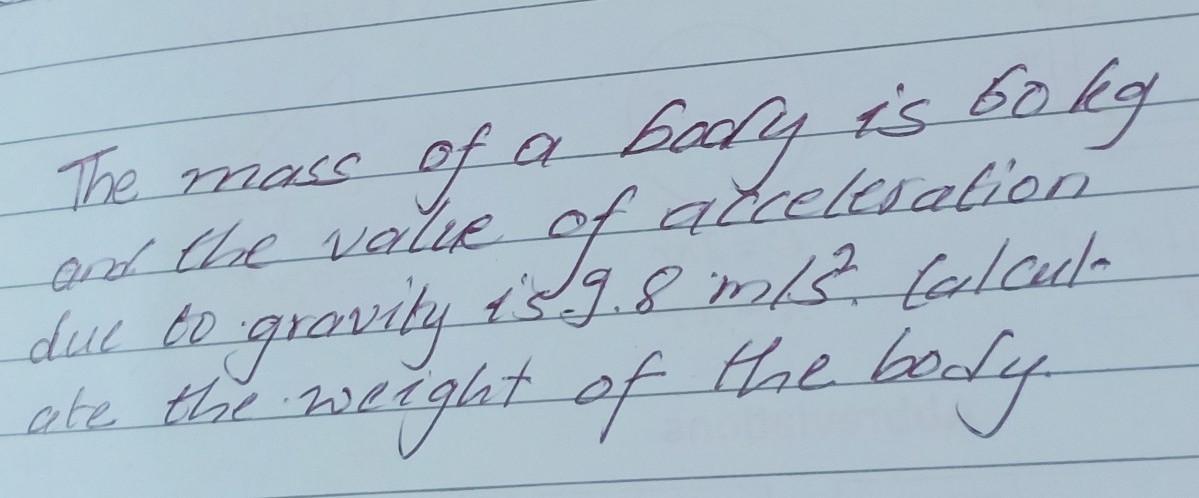 The mass of a body is 60 kg
and the value of acceleration
due to gravity is 9.8 m/s². Calcul-
ate the weight of the body.